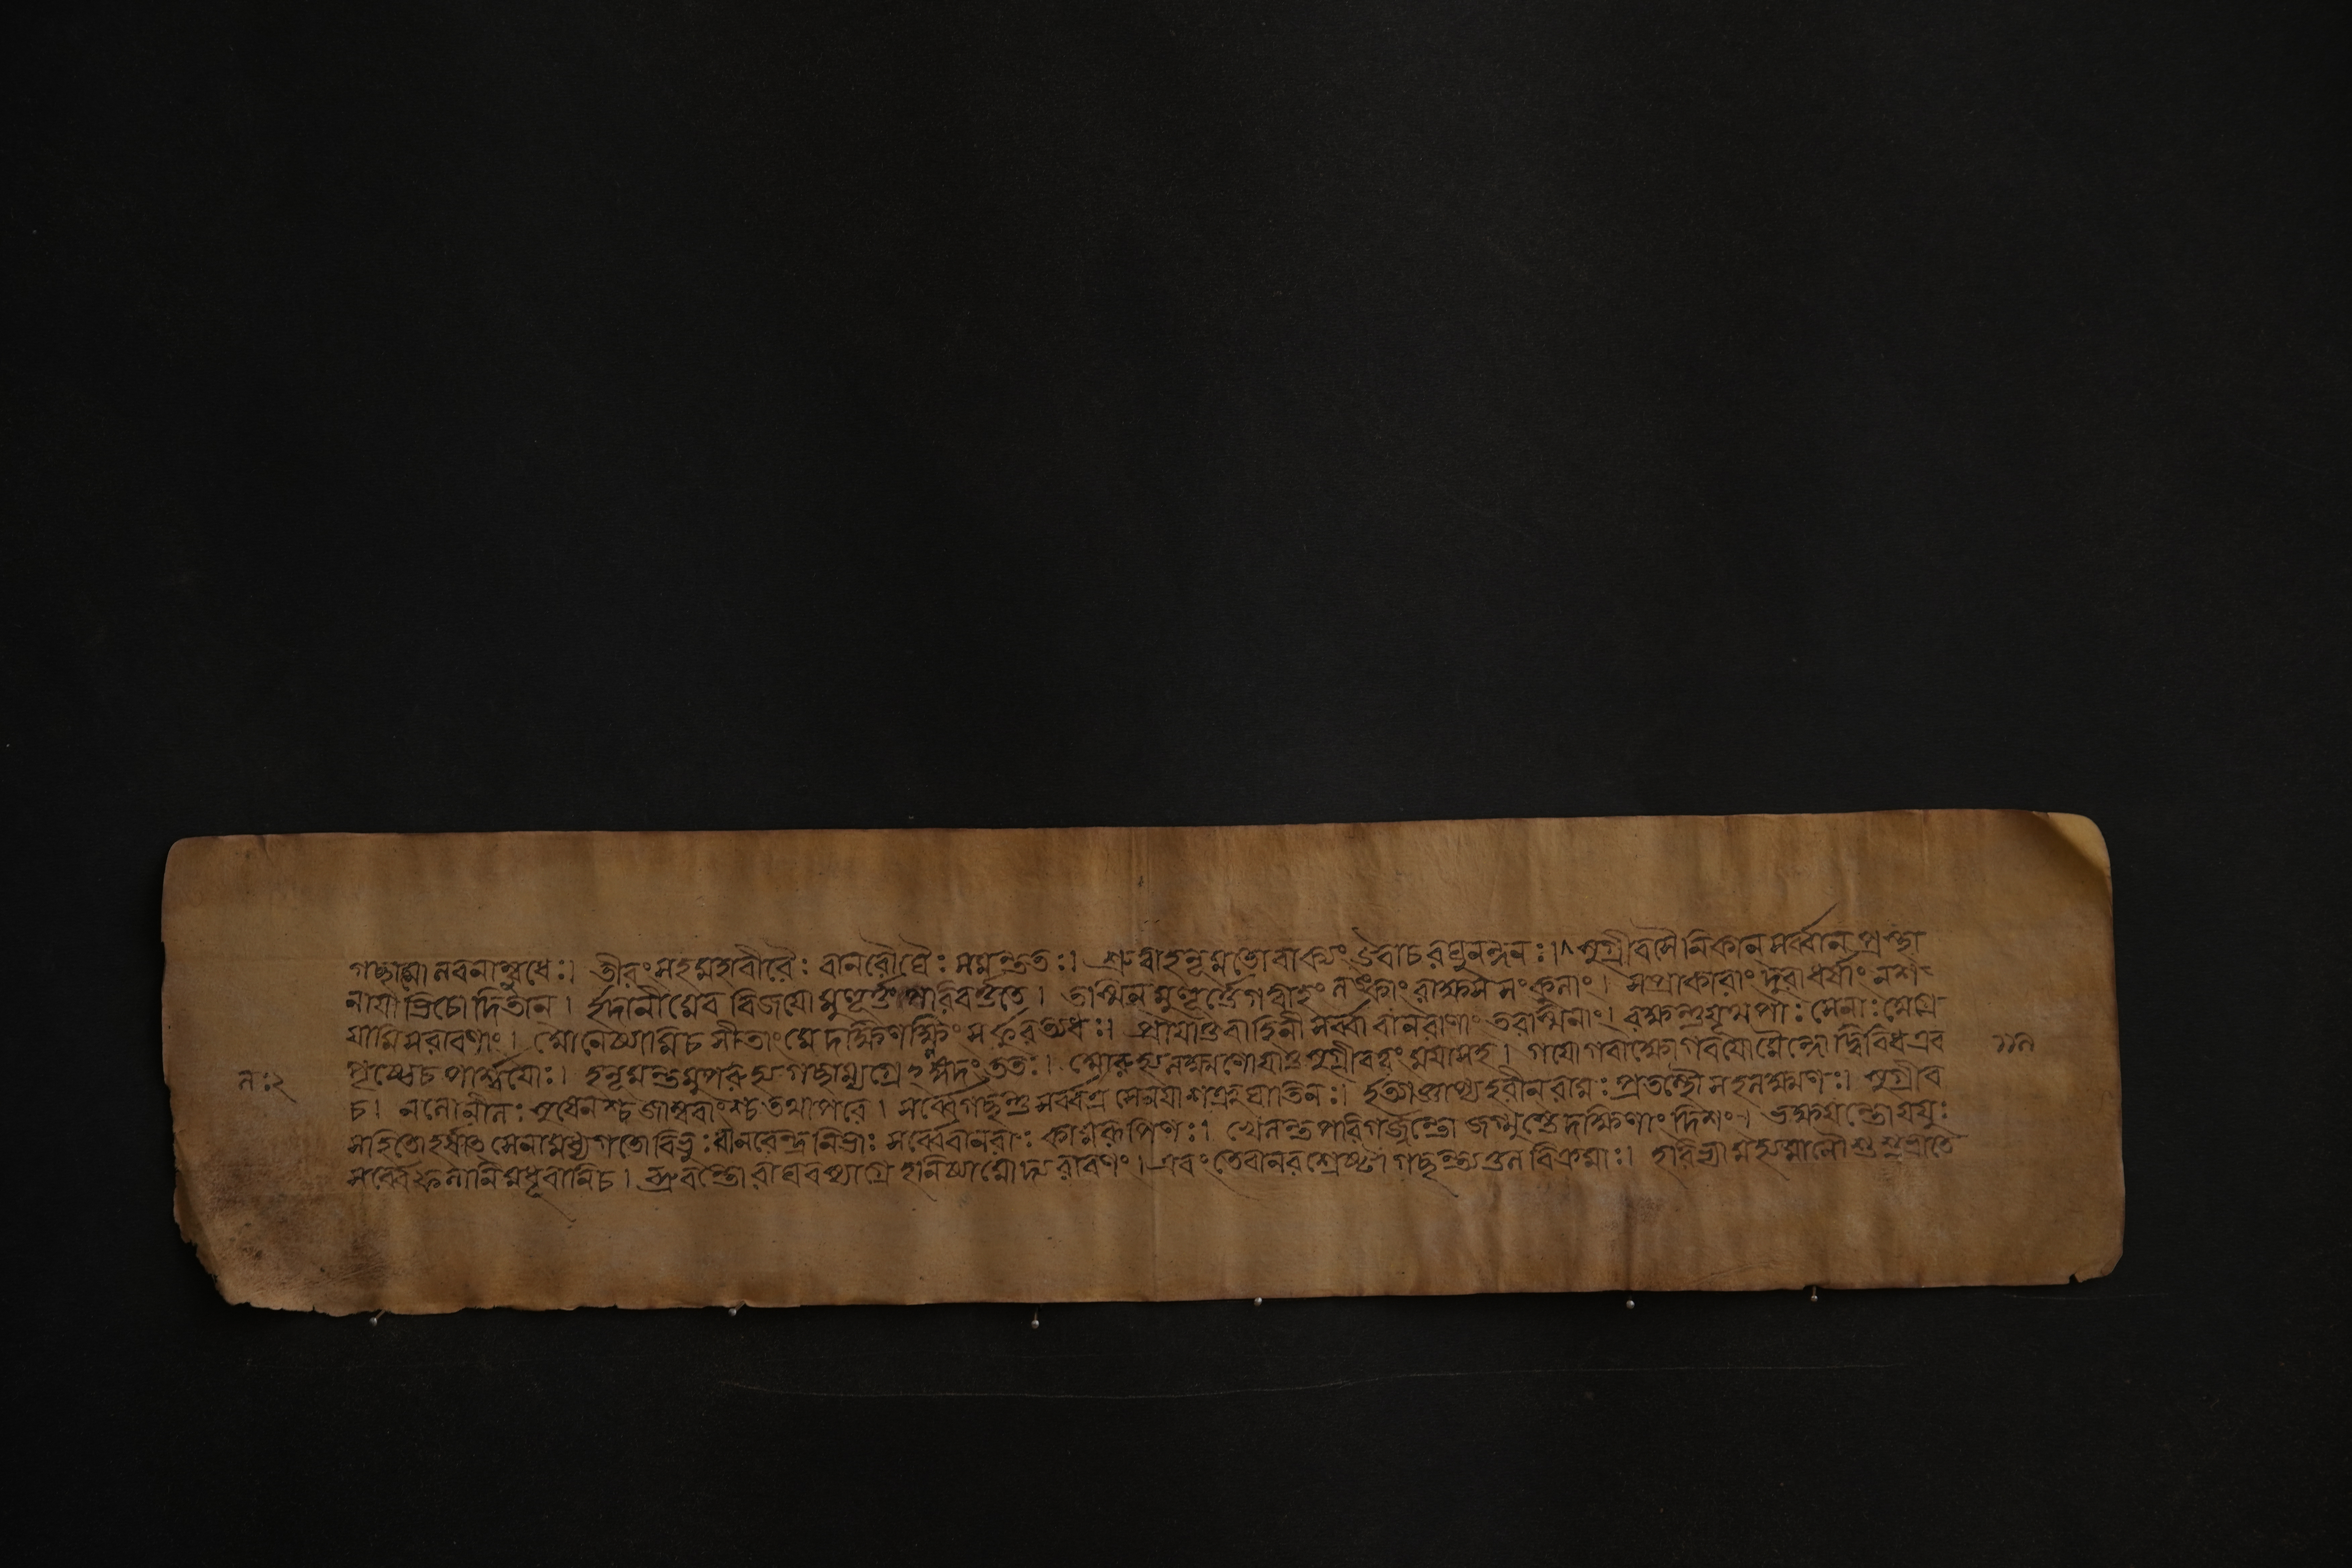 গচ্ছামো লবনাম্বুধেঃ। তীরং সহ মহাবীরৈঃ বানরৌঘৈঃ সমন্ততঃ। শ্রুত্বা হনূমতো বাক্যং উবাচ রঘুনন্দনঃ। সুগ্রীব সৈনিকান সর্ব্বান প্রস্থা
নাযাভিচোদিতান। ইদানীমেব বিজযো মুহূর্ত্তঃ পরিবর্ত্ততে। তস্মিন মুহূর্ত্তে গত্বাহং লঙ্কাং রাক্ষস সংকুলাং। সপ্রাকারাং দুরাধর্ষাং নাশ
যামি সরাবণাং। আনেষ্যামি চ সীতাং মে দক্ষিণাক্ষিং স্ফুরত্যধঃ। প্রযাতু বাহিনী সর্ব্বা বানরাণাং তরস্বিনাং। রক্ষন্তু যূথপাঃ সেনাঃ মগ্রে
পৃষ্ঠে চ পার্শ্বযোঃ। হনূমন্তমুপারুহ্য গচ্ছাম্যগ্রেঽঙ্গদং ততঃ। আরুহ্য লক্ষ্মণো যাতু সুগ্রীব ত্বং মযা সহ। গযো গবাক্ষো গবযো মৈন্দো দ্বিবিধ এব
চ। নলো নীলঃ সুষেনশ্চ জাম্ববাংশ্চ তথাপরে। সর্ব্বে গচ্ছন্তু সর্ব্বত্র সেনাযাঃ শত্রুঘাতিনঃ। ইত্যাজ্ঞাপ্য হরীন রামঃ প্রতস্থে সহ লক্ষ্মণঃ। সুগ্রীব
সহিতো হর্ষাৎ সেনামধ্যগতো বিভুঃ। বানরেন্দ্র নিভাঃ সর্ব্বে বানরাঃ কামরূপিণঃ। খেলন্তঃ পরিগর্জ্জন্তো জগ্মুস্তে দক্ষিণাং দিশং। ভক্ষযন্তো যযুঃ
সর্ব্বে ফলানি মধূবানি চ। ব্রুবন্তো রাঘবস্যাগ্রে হনিষ্যামোদ্য রাবণং। এবং তে বানরশ্রেষ্ঠা গচ্ছন্ত্যতুল বিক্রমাঃ। হরিভ্যামুহ্যমানৌ শুশুভাতে
ল:২